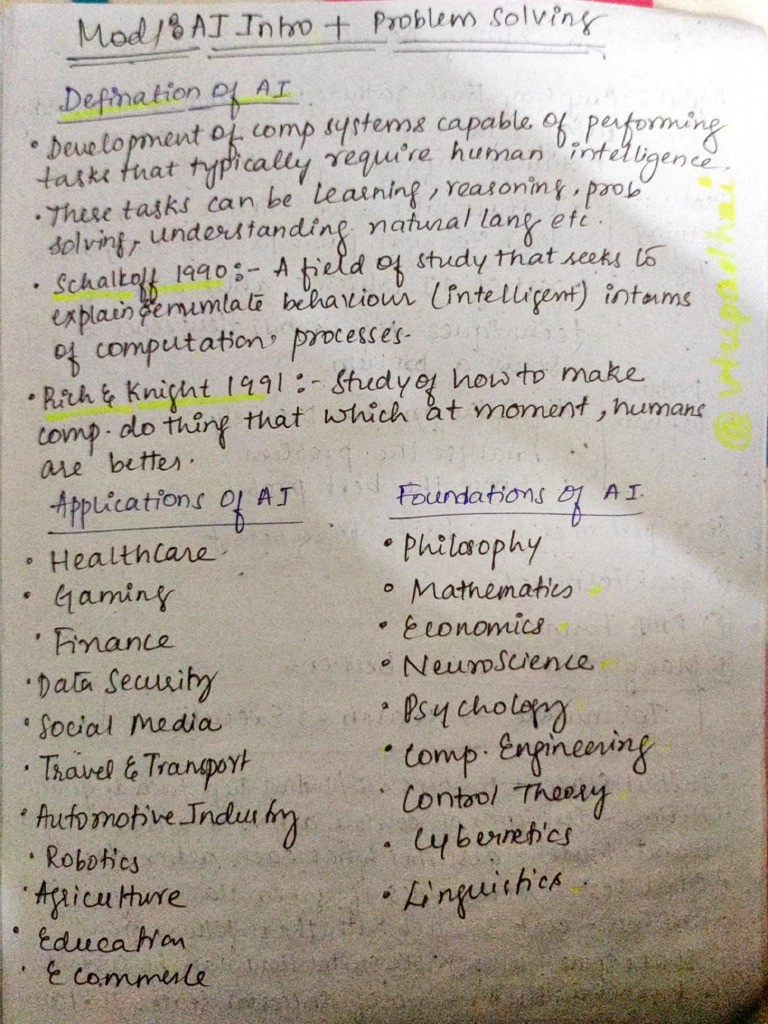 Mod 1: AI Intro + Problem Solving
Defination Of AI
• Development of comp systems capable of performing
tasks that typically require human intelligence.
• These tasks can be learning, reasoning, prob
solving, understanding natural lang etc.
• Schalkoff 1990 :- A field of study that seeks to
explain & emumlate behaviour (intelligent) in terms
of computation. processes.
• Rich & Knight 1991 :- Study of how to make
comp. do thing that which at moment, humans
are better.
Applications Of AI
• Healthcare
• Gaming
• Finance
• Data Security
• Social Media
• Travel & Transport
• Automotive Industry
• Robotics
• Agriculture
• Education
• E commerce
Foundations of AI.
• Philosophy
• Mathematics
• Economics
• Neuroscience
• Psychology
• Comp. Engineering
• Control Theory
• Cybernetics
• Linguistics